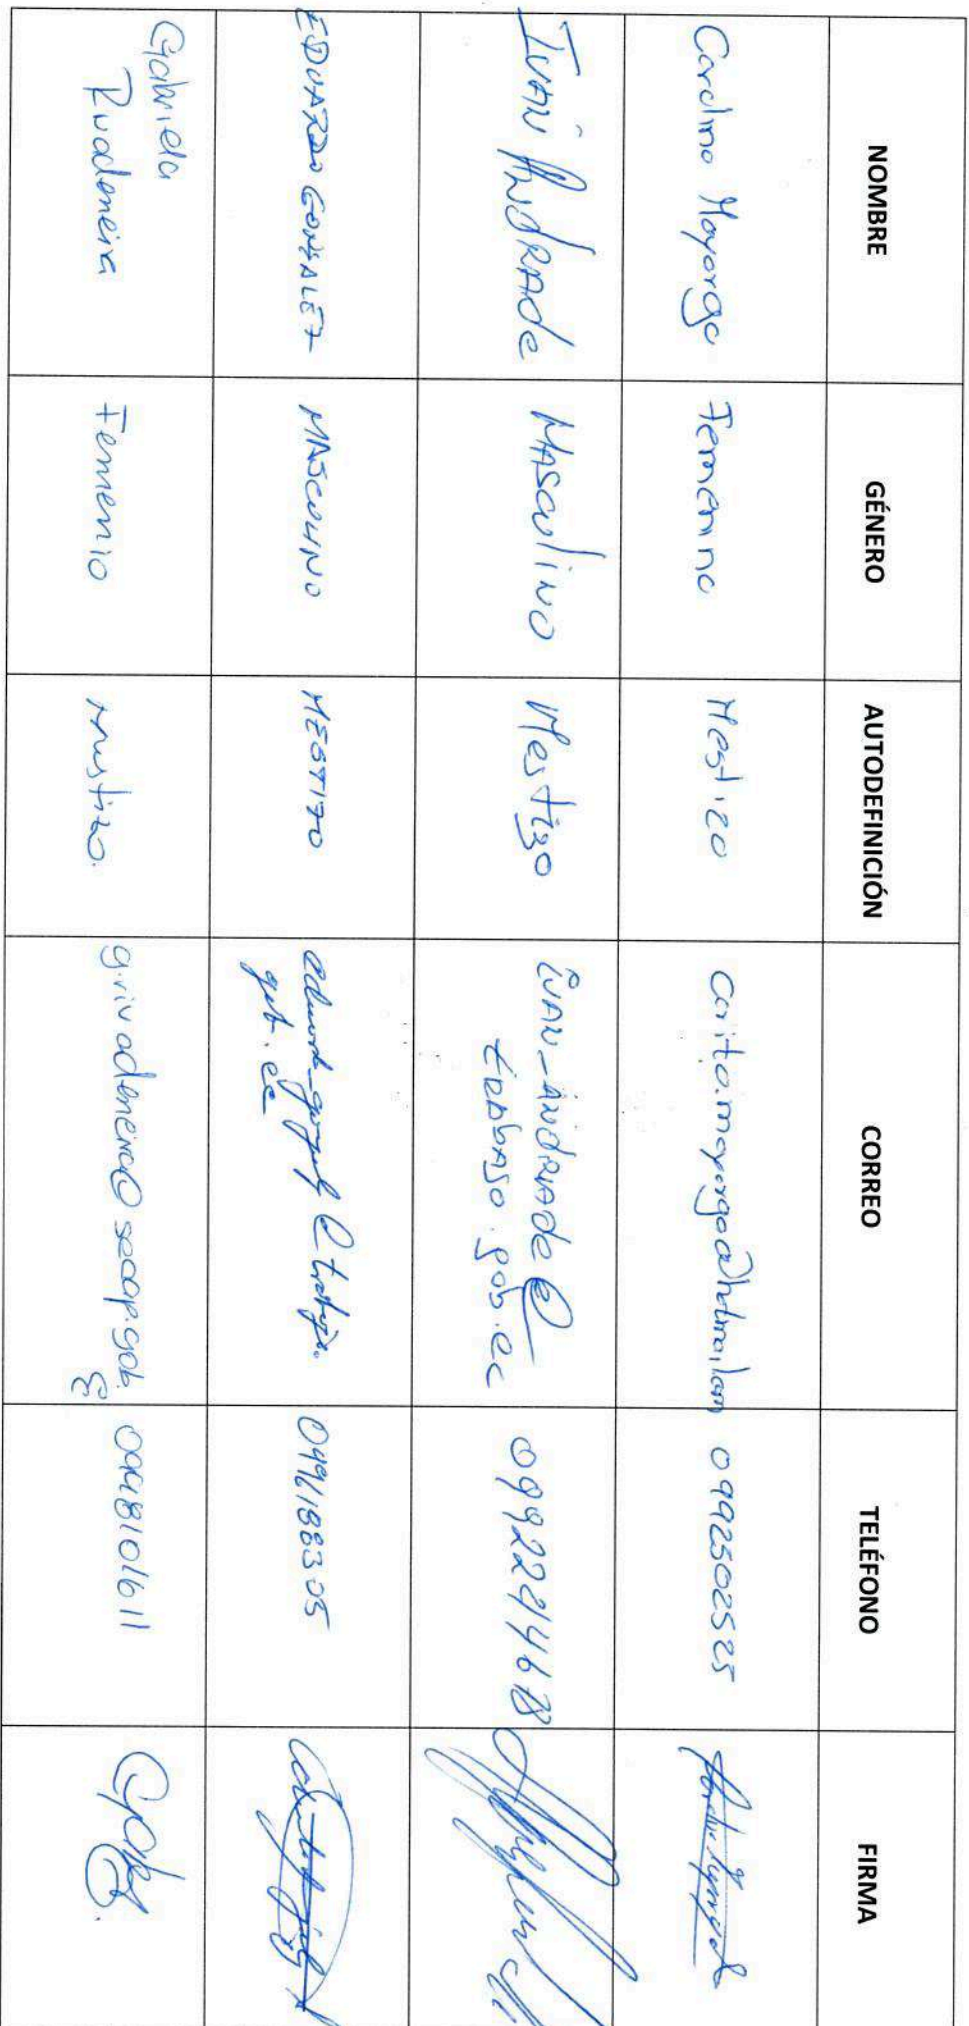 NOMBRE GÉNERO AUTODEFINICIÓN CORREO TELÉFONO FIRMA
Carolina Mayorga Femenino Mestizo carito.mayorga@hotmail.com 0992502525
IVAN ANDRADE MASCULINO Mestizo IVAN_ANDRADE@
TRABAJO.gob.ec 0992244618
EDUARDO GONZALEZ MASCULINO MESTIZO eduardo_gonzalez@trabajo.
gob.ec 0996188305
Gabriela
Rivadeneira Femenio mestizo. g.rivadeneira@secap.gob.
ec 0998101611